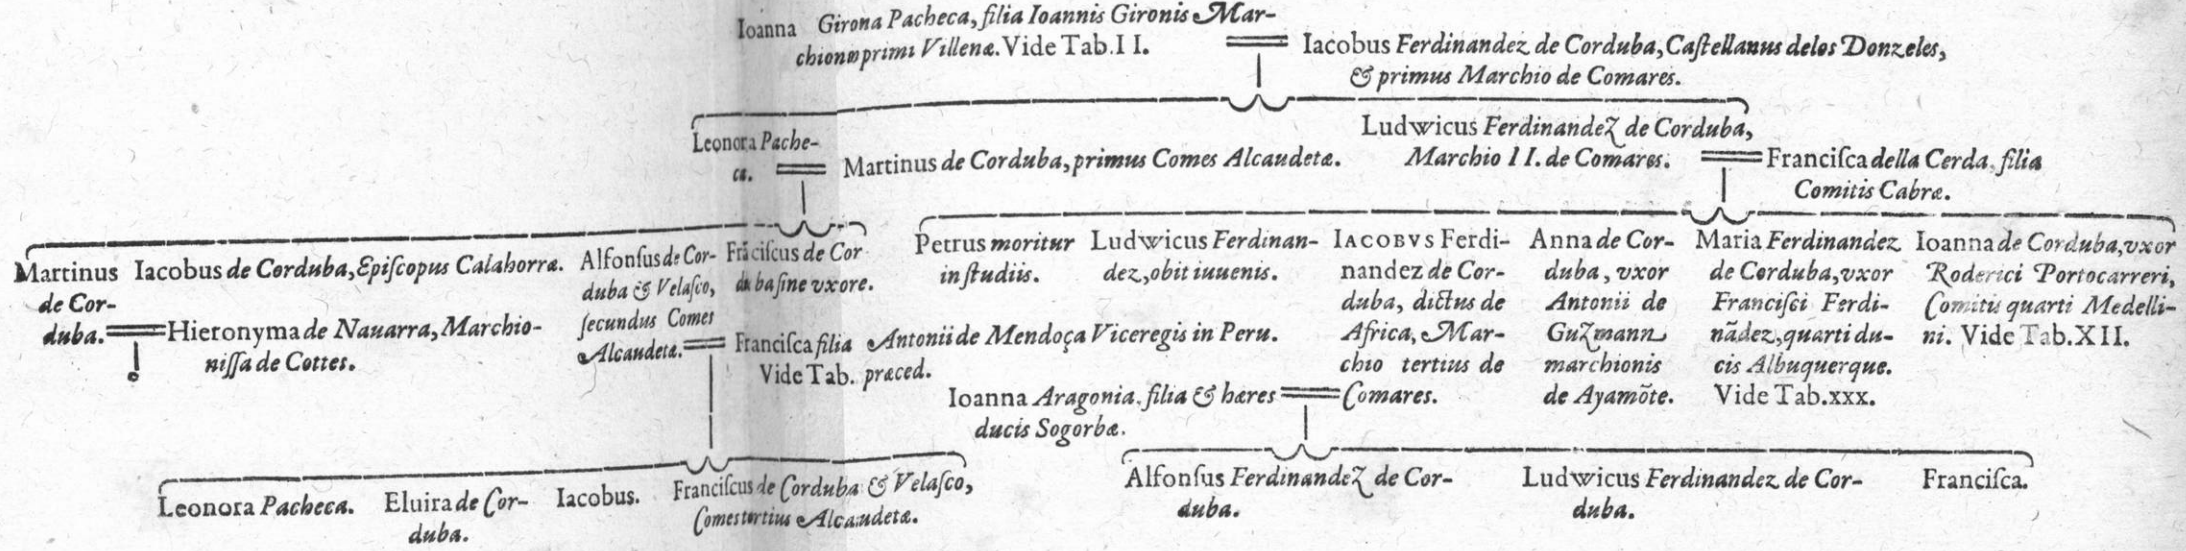 Ioanna Girona Pacheca, filia Ioannis Gironis Mar-
chionis primi Villenæ. Vide Tab. II.
Iacobus Ferdinandez de Corduba, Caſtellanus delos Donzeles,
& primus Marchio de Comares.
Leonora Pache-
ca.
Martinus de Corduba, primus Comes Alcaudetæ.
Ludwicus Ferdinandez de Corduba,
Marchio II. de Comares.
Franciſca della Cerda, filia
Comitis Cabræ.
Martinus
de Cor-
duba.
Hieronyma de Nauarra, Marchio-
niſſa de Cottes.
Iacobus de Corduba, Epiſcopus Calahorræ.
Alfonſus de Cor-
duba & Velaſco,
ſecundus Comes
Alcaudetæ.
Franciſca filia Antonii de Mendoça Viceregis in Peru.
Vide Tab. præced.
Frãciſcus de Cor
duba ſine vxore.
Petrus moritur
in ſtudiis.
Ludwicus Ferdinan-
dez, obit iuuenis.
IACOBVS Ferdi-
nandez de Cor-
duba, dictus de
Africa, Mar-
chio tertius de
Comares.
Ioanna Aragonia, filia & hæres
ducis Sogorbæ.
Anna de Cor-
duba, vxor
Antonii de
Guzmann
marchionis
de Ayamõte.
Maria Ferdinandez
de Corduba, vxor
Franciſci Ferdi-
nãdez, quarti du-
cis Albuquerque.
Vide Tab. xxx.
Ioanna de Corduba, vxor
Roderici Portocarreri,
Comitis quarti Medelli-
ni. Vide Tab. XII.
Leonora Pacheca.
Eluira de Cor-
duba.
Iacobus.
Franciſcus de Corduba & Velaſco,
Comes tertius Alcaudetæ.
Alfonſus Ferdinandez de Cor-
duba.
Ludwicus Ferdinandez de Cor-
duba.
Franciſca.